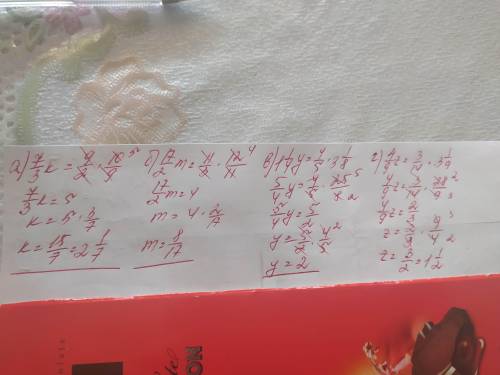 а) 7/3 k = 9/2 · 10/9 5
7/3 k = 5
k = 5 · 3/7
k = 15/7 = 2 1/7
б) 17/2 m = 11/3 · 12/11 4
17/2 m = 4
m = 4 · 2/17
m = 8/17
в) 1 1/4 y = 4/5 · 3 1/8
5/4 y = 4/5 · 25/8 5 2
5/4 y = 5/2
y = 5/2 · 4/5 2
y = 2
г) 4/9 z = 3/14 · 3 1/9
4/9 z = 3/14 · 28/9 2 3
4/9 z = 2/3
z = 2/3 · 9/4 3 2
z = 3/2 = 1 1/2